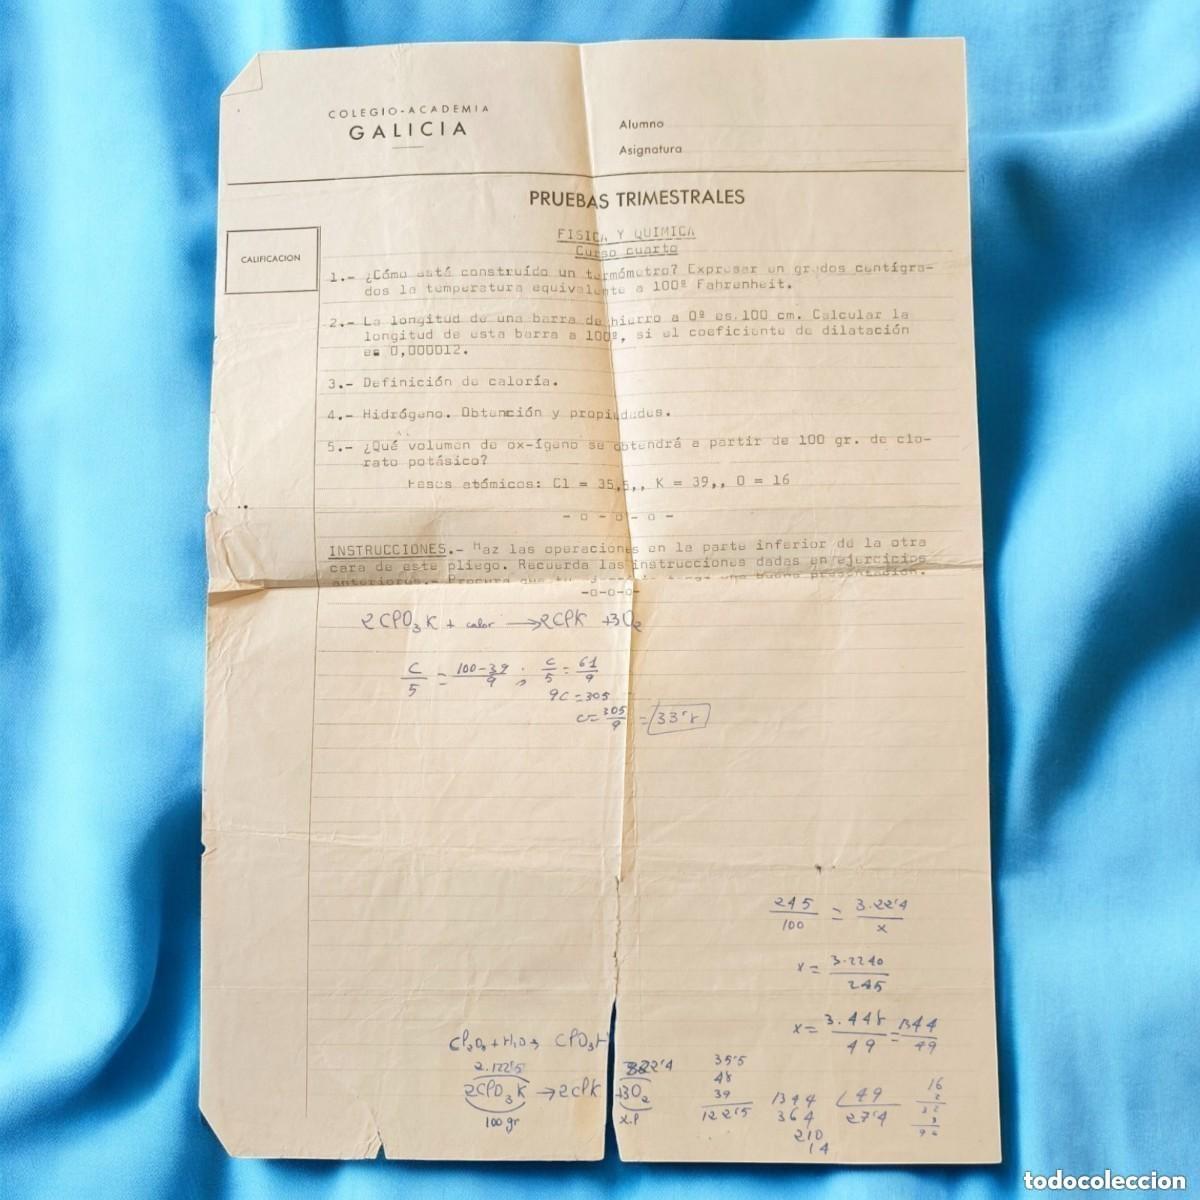 COLEGIO-ACADEMIA
GALICIA
Alumno
Asignatura
PRUEBAS TRIMESTRALES
CALIFICACION
FISICA Y QUIMICA
Curso cuarto
1.- ¿Cómo está construído un termómetro? Expresar en grados centígra-
dos la temperatura equivalente a 100º Fahrenheit.
2.- La longitud de una barra de hierro a 0º es.100 cm. Calcular la
longitud de esta barra a 100º, si el coeficiente de dilatación
es 0,000012.
3.- Definición de caloría.
4.- Hidrógeno. Obtención y propiedades.
5.- ¿Qué volumen de ox-ígeno se obtendrá a partir de 100 gr. de clo-
rato potásico?
Pesos atómicos: Cl = 35,5,, K = 39,, O = 16
- o - o - o -
INSTRUCCIONES.- Haz las operaciones en la parte inferior de la otra
cara de este pliego. Recuerda las instrucciones dadas en ejercicios
anteriores.- Procura que tu tenga una buena presentación.
-o-o-o-
2ClO3K + calor → 2ClK + 3O2
C/5 = 100-39/9 ; C/5 = 61/9
9C = 305
C = 305/9 = 33'8
245/100 = 3.22'4/x
x = 3.2240/245
x = 3.448/49 = 1344/49
Cl2O5 + H2O → ClO3H
2.122'5
2ClO3K → 2ClK + 3O2
100 gr
x.l
35'5
48
39
122'5
1344 49
364 27'4
210
14
16
2
32
3
96
todocoleccion